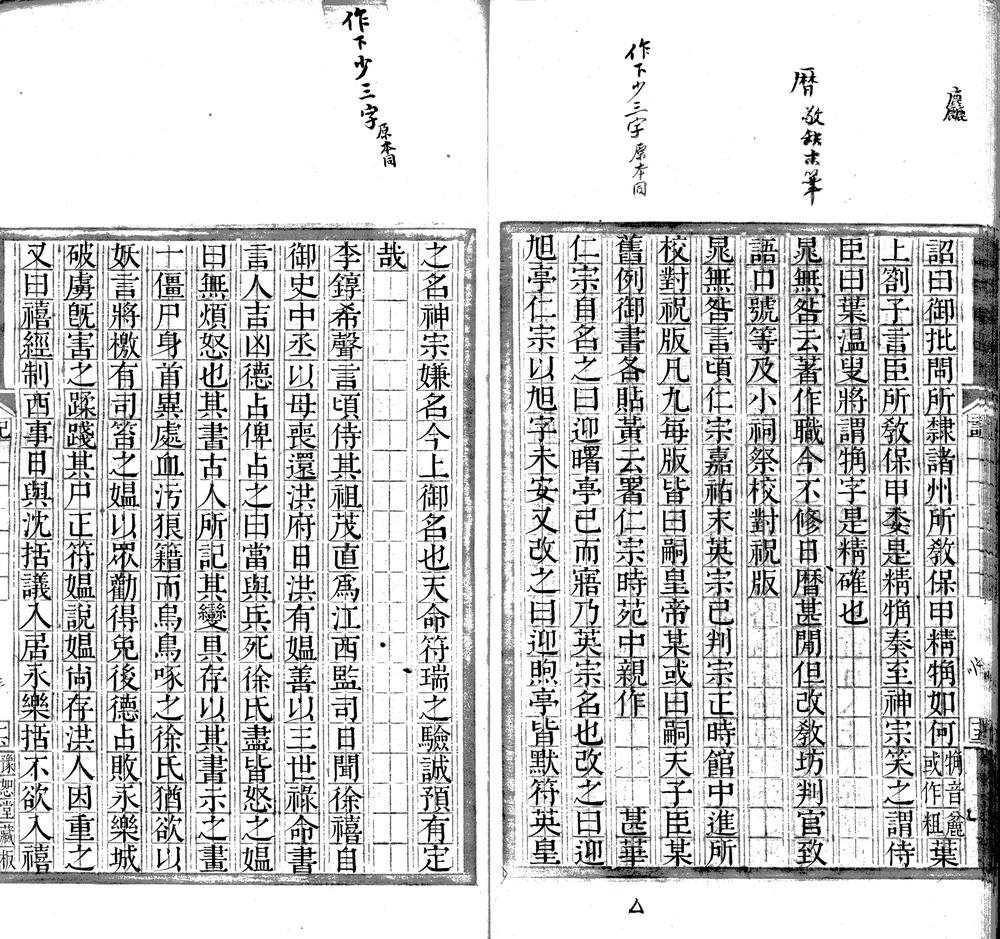 麤
暦 敬缺末筆
作下少三字 原本同
詔曰御批問所隸諸州所教保甲精觕如何觕音麄或作粗葉
上劄子言臣所教保甲委是精觕奏至神宗笑之謂侍
臣曰葉溫叟將謂觕字是精確也
晁無咎云著作職今不修日暦甚閒但改教坊判官致
語口號等及小祠祭校對祝版
晁無咎言頃仁宗嘉祐末英宗已判宗正時館中進所
校對祝版凡九每版皆曰嗣皇帝某或曰嗣天子臣某
舊例御書各貼黃云署仁宗時苑中親作　　　甚華
仁宗自名之曰迎曙亭已而寤乃英宗名也改之曰迎
旭亭仁宗以旭字未安又改之曰迎煦亭皆默符英皇
作下少三字 原本同
之名神宗嫌名今上御名也天命符瑞之驗誠預有定
哉
李錞希聲言頃侍其祖茂直爲江西監司日聞徐禧自
御史中丞以母喪還洪府日洪有媼善以三世祿命書
言人吉凶德占俾占之曰當與兵死徐氏盡皆怒之媼
曰無煩怒也其書古人所記其變具存以其書示之畫
十僵尸身首異處血污狼籍而烏鳥啄之徐氏猶欲以
妖言將檄有司笞之媼以眾勸得免後德占敗永樂城
破虜旣害之蹂踐其尸正符媼說媼尙存洪人因重之
又曰禧經制西事日與沈括議入居永樂括不欲入禧
豫恕堂藏板